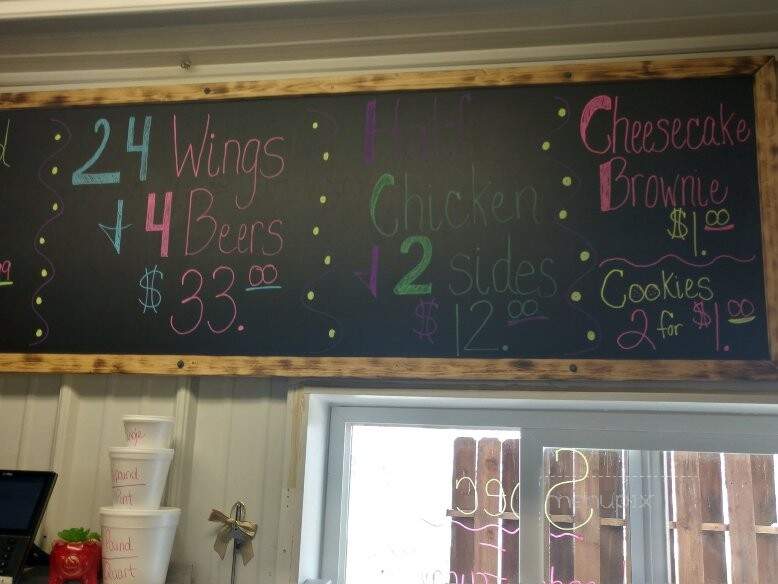 24 Wings
↓ 4 Beers
$33.00
Half
Chicken
↓ 2 sides
$12.00
Cheesecake
Brownie
$1.00
Cookies
2 for $1.00
Pint
Quart
Spec
menupix